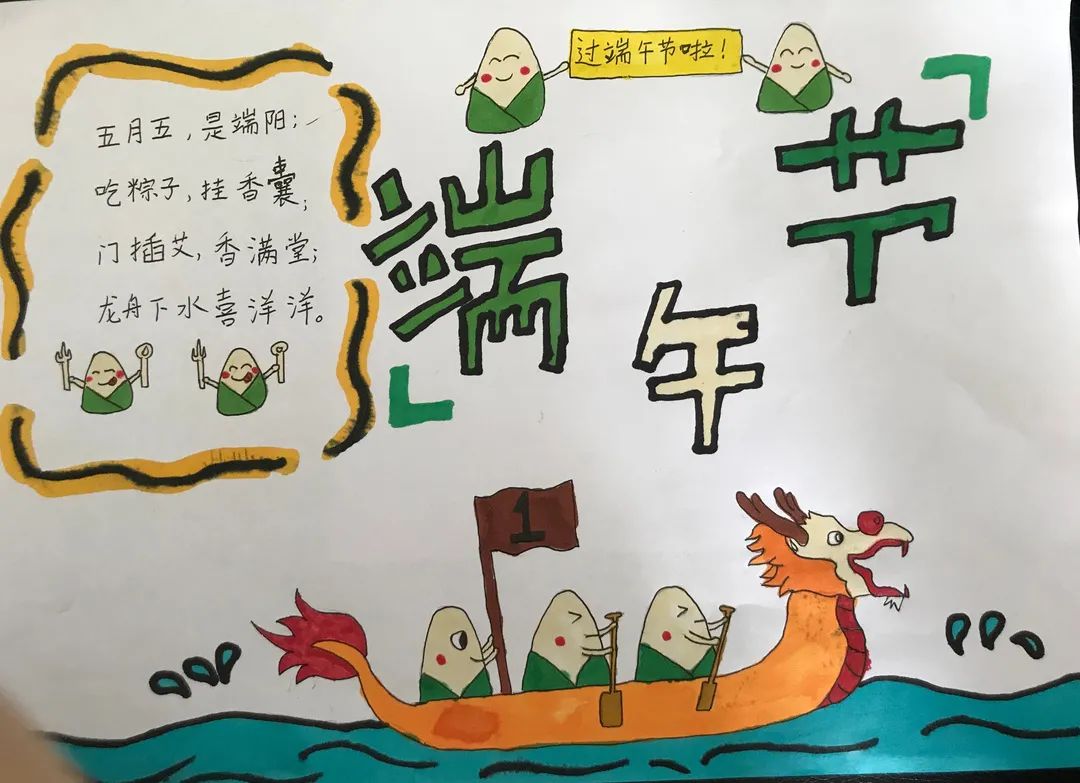 过端午节啦！
端午节
五月五，是端阳；
吃粽子，挂香囊；
门插艾，香满堂；
龙舟下水喜洋洋。
1